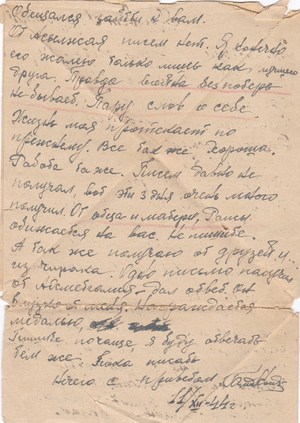 Обещался зайти к вам.
От писем нет. Я конечно
его жалею только лишь как лучшего
друга. Правда война без потерь
не бывает. Пару слов о себе.
Жизнь моя протекает по
прежнему. Все так же хорошо.
Работа то же. Писем давно не
получал, вот эти 3 дня очень много
получил. От отца и матери, Раисы
обижается на вас. Не пишите.
А так же получаю от друзей и
из Одно письмо получил
от дал ответ. Он
от меня. Награждается
медалью,
Пишите почаще, я буду отвечать
тем же. Пока писать
нечего с приветом
XII-44г